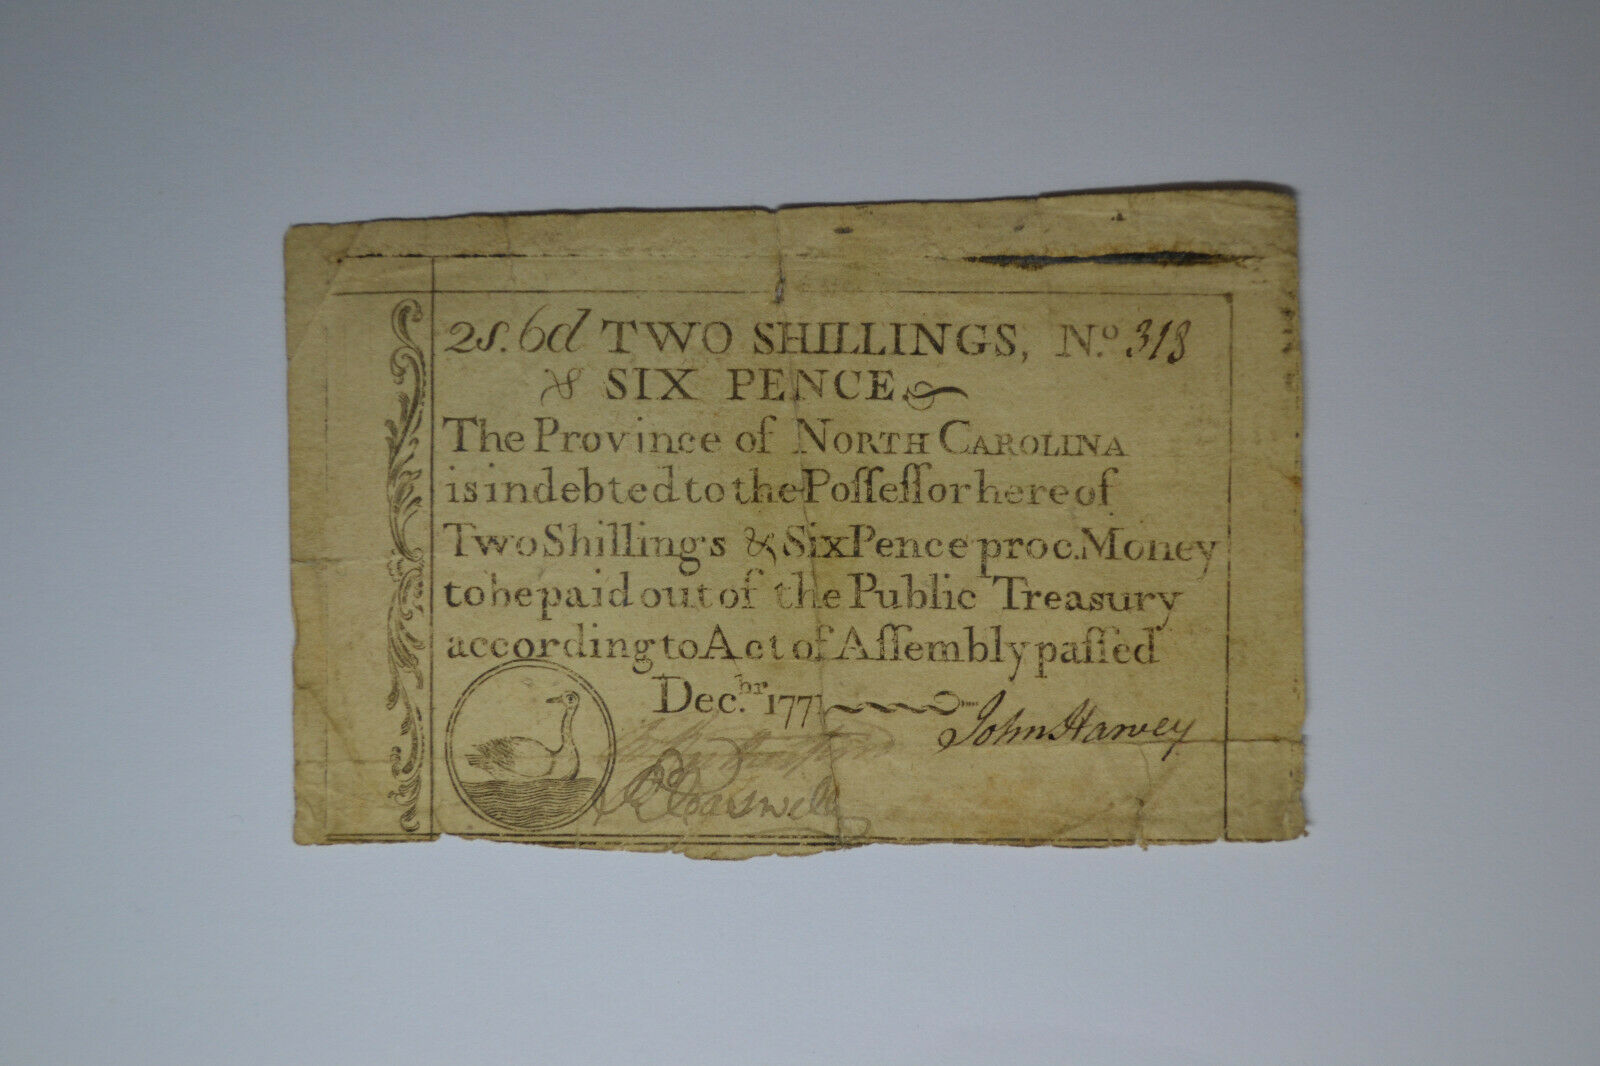 2s. 6d TWO SHILLINGS, No. 318
& SIX PENCE.
The Province of NORTH CAROLINA
is indebted to the Poſſeſſor hereof
Two Shillings & Six Pence proc. Money
to be paid out of the Public Treasury
according to Act of Aſſembly paſſed
Dec.br 1771
John Harvey
R Caswell